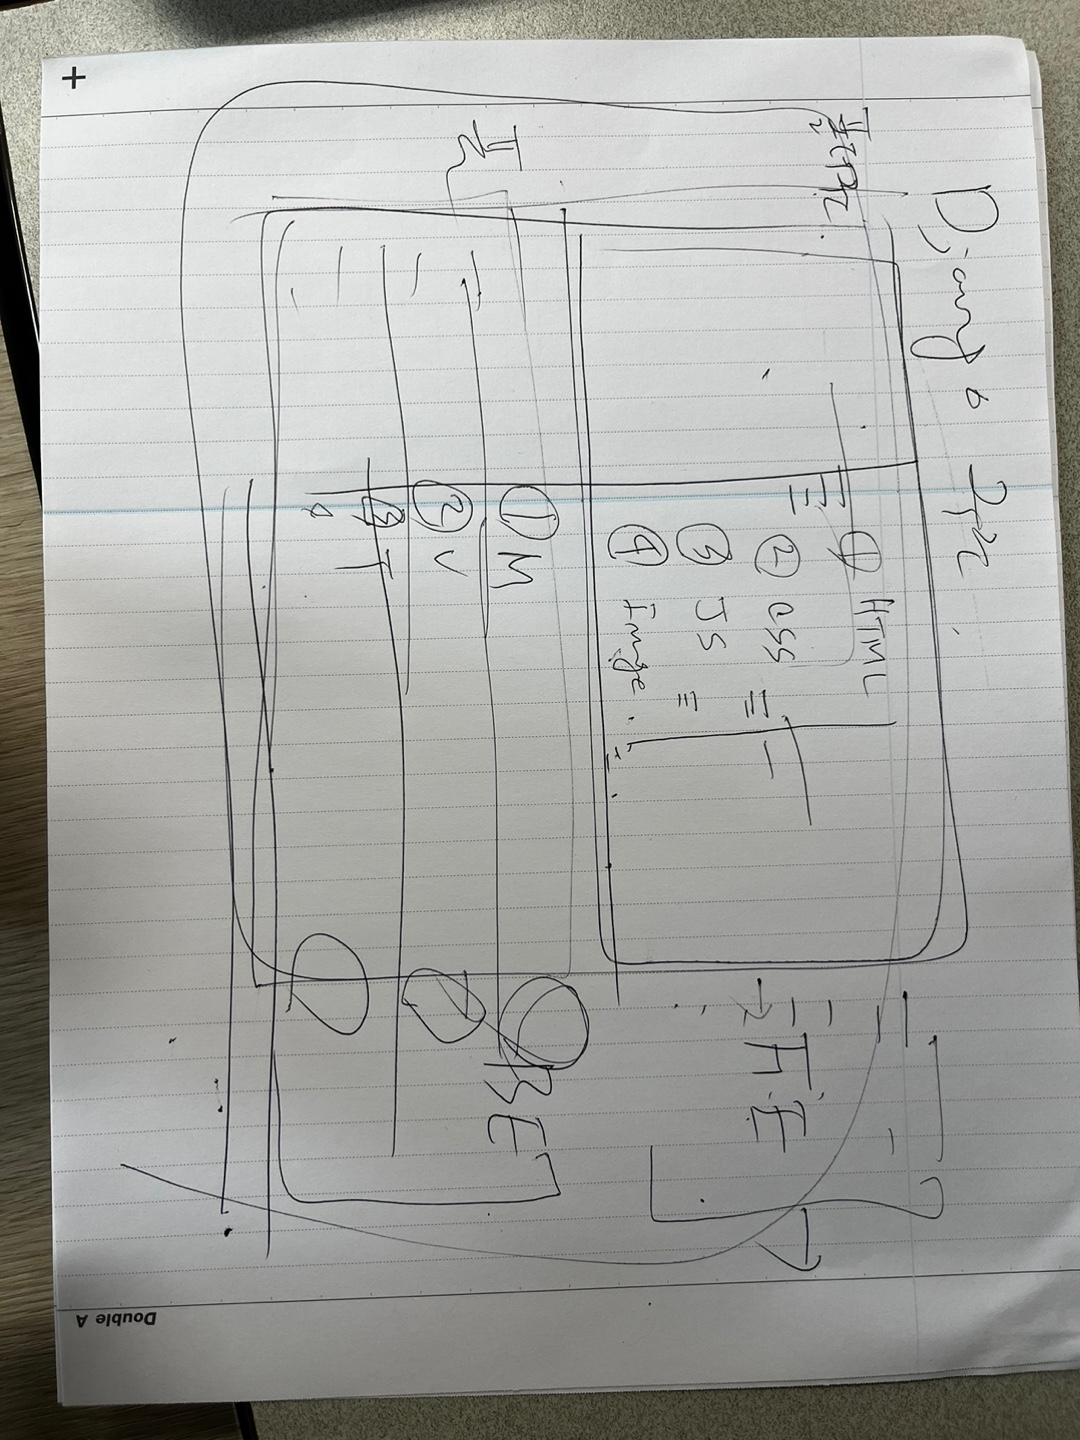 Django 구조
① HTML
② CSS
③ JS
④ Image
F.E
① M
② V
③ T
BE
Double A